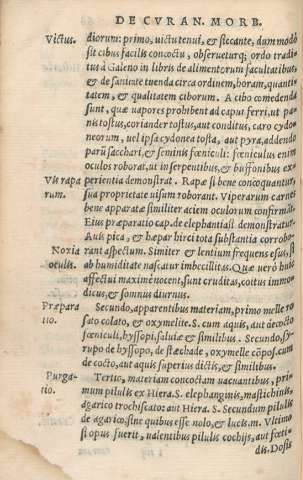 DE CVRAN. MORB.
Victus.
diorum: primo, uictu tenui, & siccante, dum modò
sit cibus facilis concoctu, obserueturq; ordo tradi-
tus à Galeno in libris de alimentorum facultatibus
& de sanitate tuenda circa ordinem, horam, quanti-
tatem, & qualitatem ciborum. A cibo comedenda
sunt, quæ uapores prohibent ad caput ferri, ut pa-
nis tostus, coriander tostus, aut conditus, caro cydo-
neorum, uel ipsa cydonea tosta, aut pyra, addendo
parū sacchari, & seminis fœniculi: fœniculus enim
oculos roborat, ut in serpentibus, & buffonibus ex-
Vis rapa
rum.
perientia demonstrat. Rapæ si bene concoquantur,
sua proprietate uisum roborant. Viperarum carnes
bene apparatæ similiter aciem oculorum confirmāt.
Eius præparatio cap. de elephantiasi demonstratur.
Auis pica, & hæpar hirci tota substantia corrobo-
Noxia
oculis.
rant aspectum. Similiter & lentium frequens esus, si
ab humiditate nascatur imbecillitas. Quæ verò huic
affectui maximè nocent, sunt cruditas, coitus immo-
dicus, & somnus diurnus.
Præpara
tio.
Secundo, apparentibus materiam, primo melle ro-
sato colato, & oxymelite. S. cum aquis, aut decocto
fœniculi, hyssopi, saluiæ & similibus. Secundo, sy-
rupo de hyssopo, de stœchade, oxymelle cōpos. cum
decocto, aut aquis superius dictis, & similibus.
Purga-
tio.
Tertio, materiam concoctam uacuantibus, pri-
mum pilulis ex Hiera. S. elephanginis, mastichinis,
agarico trochiscato: aut Hiera. S. Secundum pilulis
de agarico, sine quibus esse nolo, & lucis. m. Vltimo
si opus fuerit, ualentibus pilulis cochijs, aut fœti-
dis. Dosis